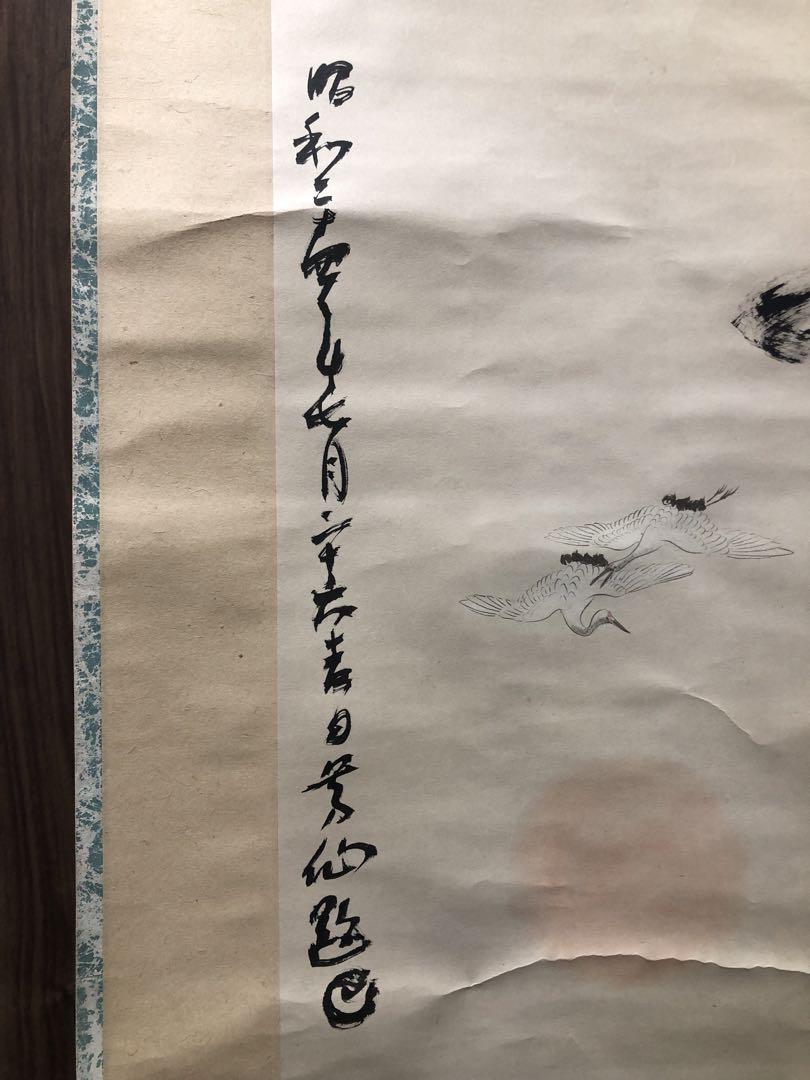 昭和三十四年七月二十六吉日芳仙題